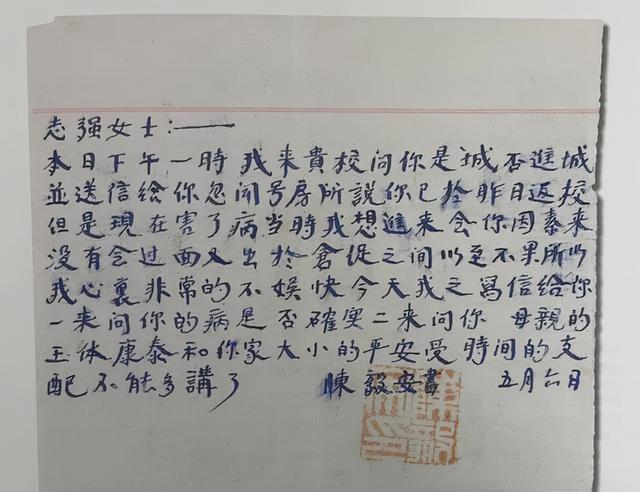 志强女士：——
本日下午一時我来貴校问你是城否進城
並送信给你忽闻号房所說你已於昨日返校
但是现在害了病当時我想進来会你因素来
没有会过面又出於倉促之间以至不果所以
我心裏非常的不娱快今天我之寫信给你
一来问你的病是否確实二来问你 母親的
玉体康泰和你家大小的平安受時间的支
配不能多講了 陳毅安書 五月六日